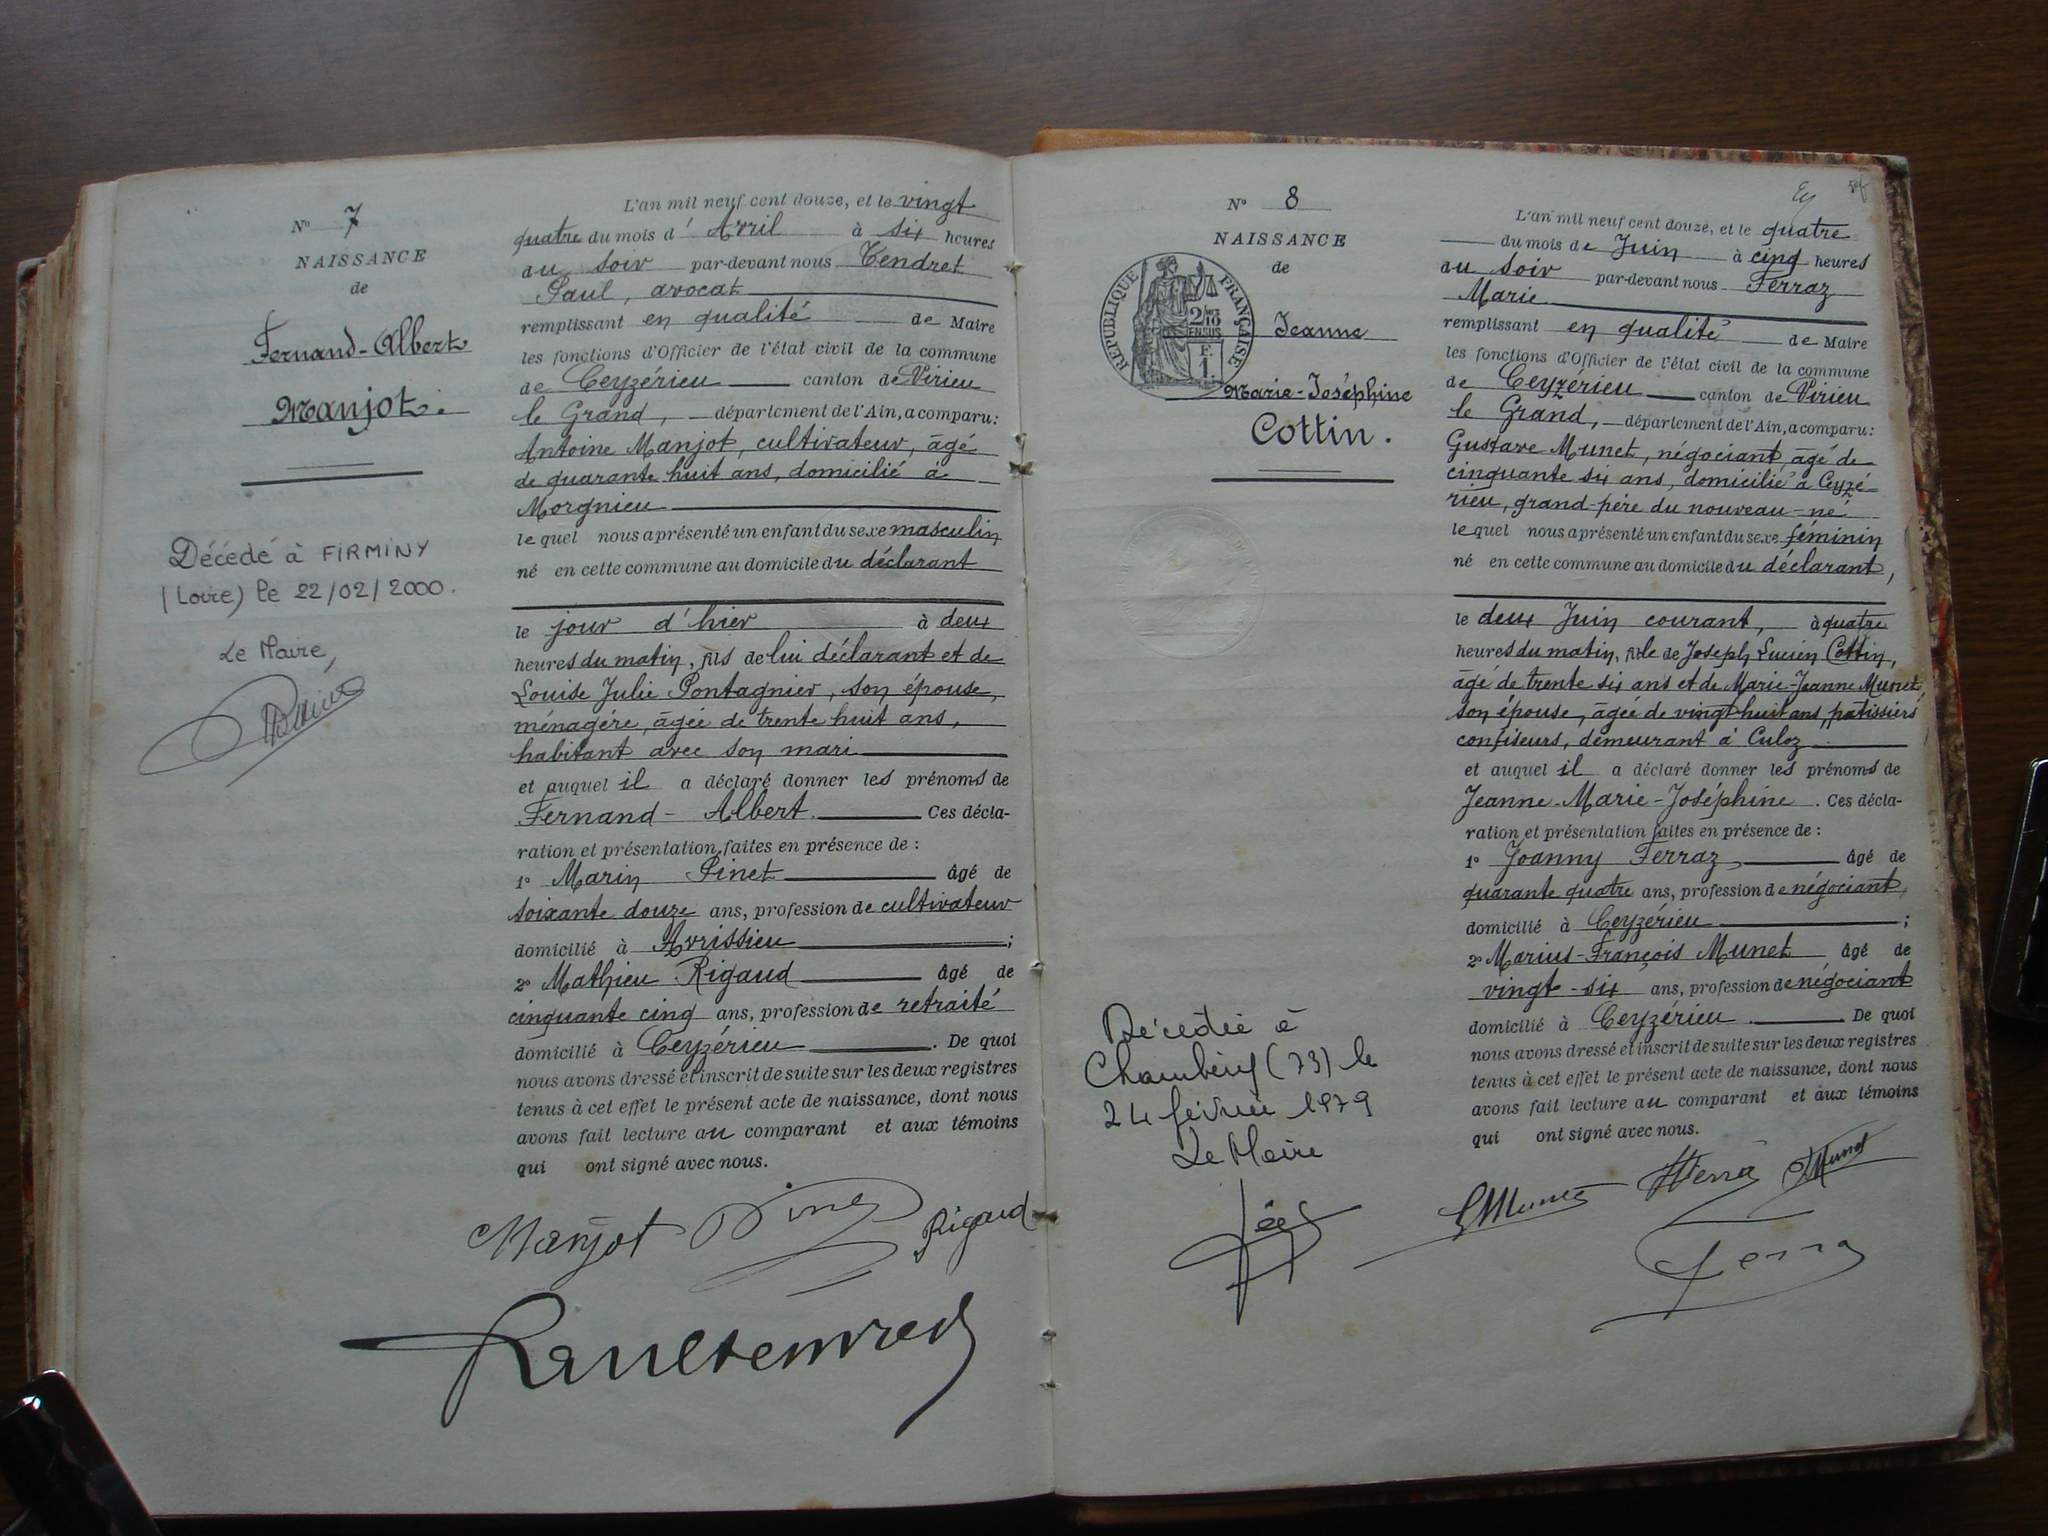 N° 7
NAISSANCE
de
Fernand-Albert
Manjot.
Décédé à FIRMINY
(Loire) le 22/02/2000.
Le Maire,
L'an mil neuf cent douze, et le vingt
quatre du mois d' Avril à six heures
au soir par-devant nous Tendret
Paul, avocat
remplissant en qualité de Maire
les fonctions d'Officier de l'état civil de la commune
de Ceyzérieu canton de Virieu
le Grand, département de l'Ain, a comparu:
Antoine Manjot, cultivateur, âgé
de quarante huit ans, domicilié à
Morgnieu
le quel nous a présenté un enfant du sexe masculin
né en cette commune au domicile du déclarant
le jour d'hier à deux
heures du matin, fils de lui déclarant et de
Louise Julie Pontagnier, son épouse,
ménagère, âgée de trente huit ans,
habitant avec son mari
et auquel il a déclaré donner les prénoms de
Fernand-Albert. Ces décla-
ration et présentation faites en présence de :
1° Marin Pinet âgé de
soixante douze ans, profession de cultivateur
domicilié à Avrissieu ;
2° Mathieu Rigaud âgé de
cinquante cinq ans, profession de retraité
domicilié à Ceyzérieu . De quoi
nous avons dressé et inscrit de suite sur les deux registres
tenus à cet effet le présent acte de naissance, dont nous
avons fait lecture au comparant et aux témoins
qui ont signé avec nous.
Manjot Pinet Rigaud
N° 8
NAISSANCE
de
RÉPUBLIQUE FRANÇAISE
2/10
EN SUS
F.
1.
Jeanne
Marie-Joséphine
Cottin.
Décédée à
Chambéry (73) le
24 février 1979
Le Maire
L'an mil neuf cent douze, et le quatre
du mois de Juin à cinq heures
au soir par-devant nous Ferraz
Marie
remplissant en qualité de Maire
les fonctions d'Officier de l'état civil de la commune
de Ceyzérieu canton de Virieu
le Grand, département de l'Ain, a comparu:
Gustave Munet, négociant, âgé de
cinquante six ans, domicilié à Ceyzé-
rieu, grand-père du nouveau-né
le quel nous a présenté un enfant du sexe féminin
né en cette commune au domicile du déclarant,
le deux Juin courant, à quatre
heures du matin, fille de Joseph Lucien Cottin,
âgé de trente six ans et de Marie-Jeanne Munet,
son épouse, âgée de vingt-huit ans, pâtissiers
confiseurs, demeurant à Culoz
et auquel il a déclaré donner les prénoms de
Jeanne-Marie-Joséphine. Ces décla-
ration et présentation faites en présence de :
1° Joanny Ferraz, âgé de
quarante quatre ans, profession de négociant,
domicilié à Ceyzérieu ;
2° Marius-François Munet âgé de
vingt-six ans, profession de négociant
domicilié à Ceyzérieu . De quoi
nous avons dressé et inscrit de suite sur les deux registres
tenus à cet effet le présent acte de naissance, dont nous
avons fait lecture au comparant et aux témoins
qui ont signé avec nous.
G Munet Munet